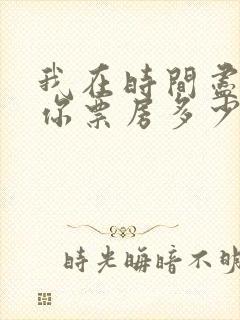 我在時間盡
你票房多少
時光晦暗不明